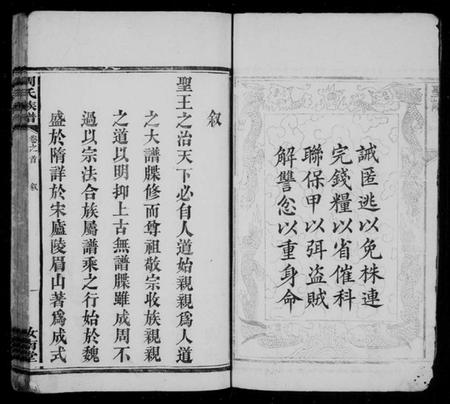 誡匿逃以免株連
完錢糧以省催科
聯保甲以弭盜賊
解讐忿以重身命
叙
聖王之治天下必自人道始親親爲人道
之大譜牒修而尊祖敬宗收族親親
之道以明抑上古無譜牒雖成周不
過以宗法合族屬譜乘之行始於魏
盛於隋詳於宋廬陵眉山著爲成式
周氏族譜
卷之首
叙
一
汝南堂